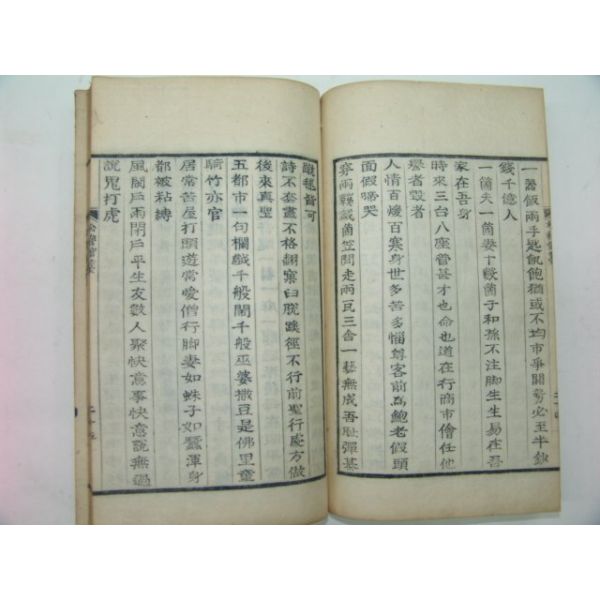 一器飯兩手匙飢飽猶或不均市爭鬪勢必至半鈔
錢千億人
一箇夫一箇妻十數箇子和孫不注脚生生易在吾
家在吾身
時來三台八座當甚才也命也道在行商市儈任他
譽者毀者
人情百煖百寒身世多苦多惱尊客前爲鮑老假頭
面假啼哭
穿兩箇笠間走兩瓦三舍一藝無成吾耻彈棊
詩不套盡不格翻窠臼脫蹊徑不行前聖行處方做
後來眞聖
五都市一句欄鹹千般鬧千般巫婆撒豆是佛里童
騎竹亦官
居常苦屋打頭道常愛僧行脚妻如蛛子如蠶渾身
都被粘縛
風閉戶雨閉戶平生友數人聚快意事快意說無過
說鬼打虎